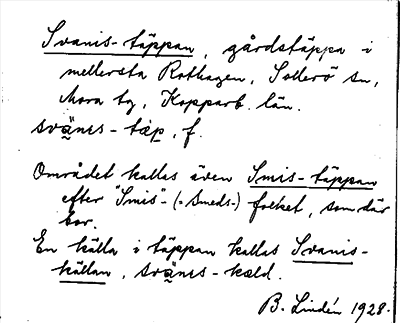 Svanis-täppan, gårdstäppa i
mellersta Rothagen, Sollerö sn,
Mora tg, Kopparb. län.
svänıs-tæp, f.
Området kallas även Smis-täppan
efter "Smis"- (=Smeds-) folket, som där
bor.
En källa i täppan kallas Svanis-
källan, svänıs-kæld.
B. Lindén 1928.